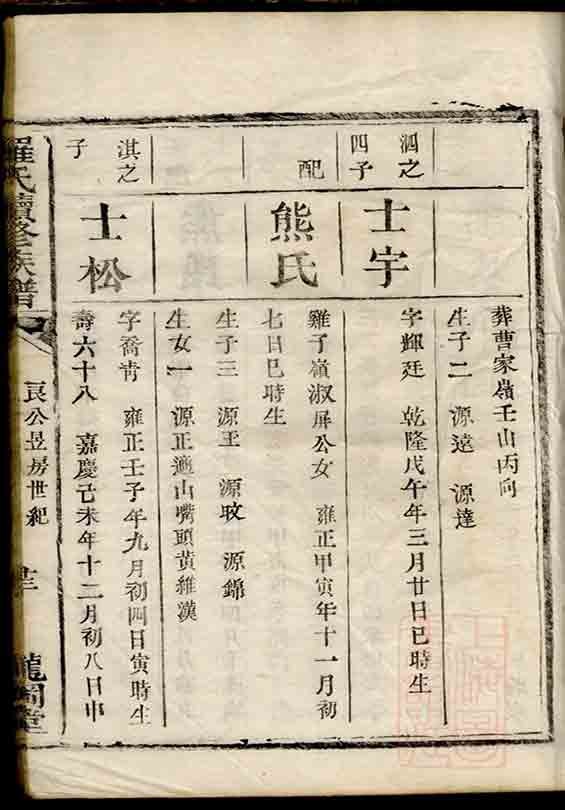 葬曹家嶺壬山丙向
生子二 源遠 源達
泗之四子
士宇
字輝廷 乾隆戊午年三月廿日巳時生
配
熊氏
雞子嶺淑屏公女 雍正甲寅年十一月初
七日巳時生
生子三 源玉 源旼 源錦
生女一 源正適山嘴頭黃維漢
淇之子
士松
字喬靑 雍正壬子年九月初四日寅時生
壽六十八 嘉慶己未年十二月初八日申
羅氏續修族譜
良公昱房世紀
龍岡堂